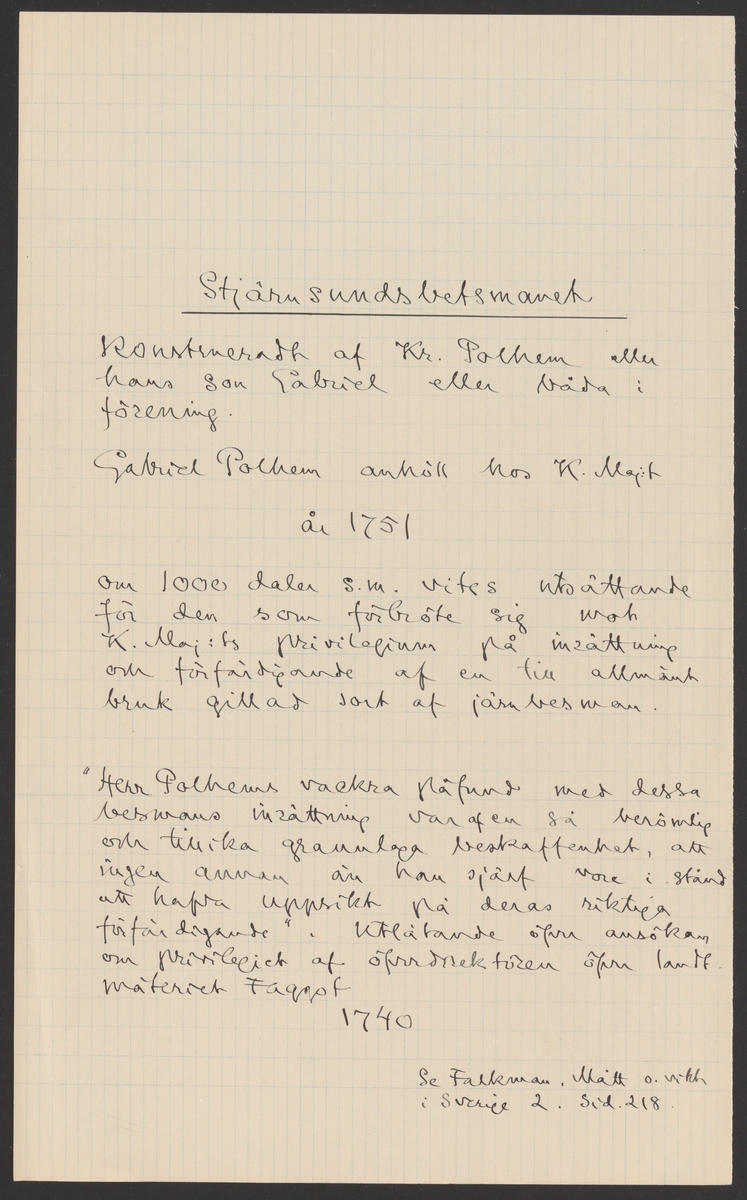 Stjärnsundsbetsmanet
Konstrueradt af Kr. Polhem eller
hans son Gabriel eller båda i
förening.
Gabriel Polhem anhöll hos K. Maj:t
år 1751
om 1000 daler s.m. vites utsättande
för den som förbröte sig mot
K. Maj:ts privilegium på inrättning
och förfärdigande af en till allmänt
bruk gillad sort af järnbesman.
"Herr Polhems vackra påfund med dessa
besmans inrättning var af en så berömlig
och tillika grannlaga beskaffenhet, att
ingen annan än han sjelf vore i stånd
att hafva uppsikt på deras riktiga
förfärdigande". Utlåtande öfver ansökan
om privilegiet af öfverdirektören öfver landt-
mäteriet Faggot
1740
Se Falkman, Mått o. vikt
i Sverige 2. Sid. 218.